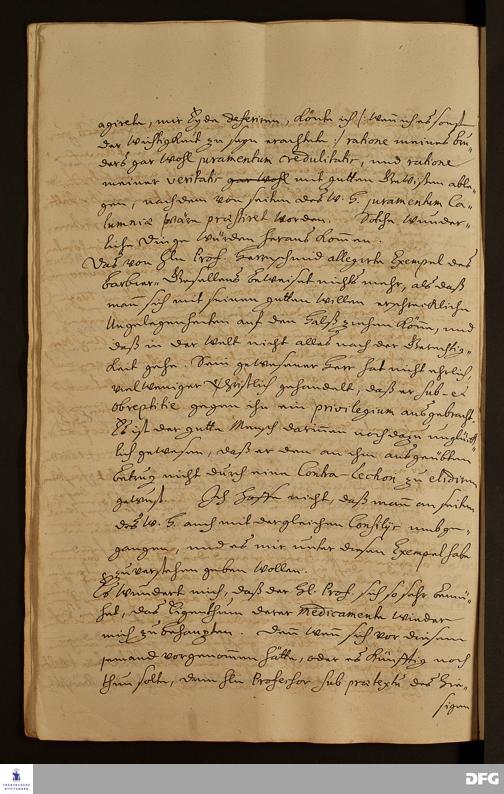 agirete, mir Eyde deferiren, könte ich /: wenn ich es sonst
der Wichtigkeit zu seyn erachtete :/ ratione meines Bru-
ders gar wohl juramentum credulitatis, und ratione
meiner veritatis gar wohl mit gutten Gewißen able-
gen, nachdem von seiten des W. H. juramentum Ca-
lumniæ præstiret worden. Solche wunder-
liche Dinge würden heraus kommen.
Das von Hln Prof. Herrnschmid allegirte Exempel des
Barbier-Gesellens beweiset nichts mehr, als daß
mann sich mit seinem gutten willen erschreckliche
Ungelegenheiten auf den Halß ziehen könne, und
daß in der Welt nicht alles nach der Gerechtig-
keit gehe. Sein gewesener Herr hat nicht ehrlich,
viel weniger Christlich gehandelt, daß er sub- et
obreptitie gegen ihn ein privilegium ausgebracht.
Es ist der gutte Mensch darinnen noch dazu unglück-
lich gewesen, daß er den an ihm ausgeübten
betrug nicht durch eine Contra-Lection zu elidiren
gewust. Ich hoffe nicht, daß mann an seiten
des W. H. auch mit dergleichen Consilijs umbge-
gangen, und es mir unter diesem Exempel habe
zu verstehen geben wollen.
Es wundert mich, daß der Hl. Prof. sich so sehr bemü-
het, das Eigenthum derer Medicamente wieder
mich zu behaupten. Denn wenn sich vor diesem
jemand vorgenommen hätte, oder es künfftig noch
thun solte, dem Hln Professor sub prætextu des Hie-
sigen
TRANCKESCHE STIFTUNGEN
DFG